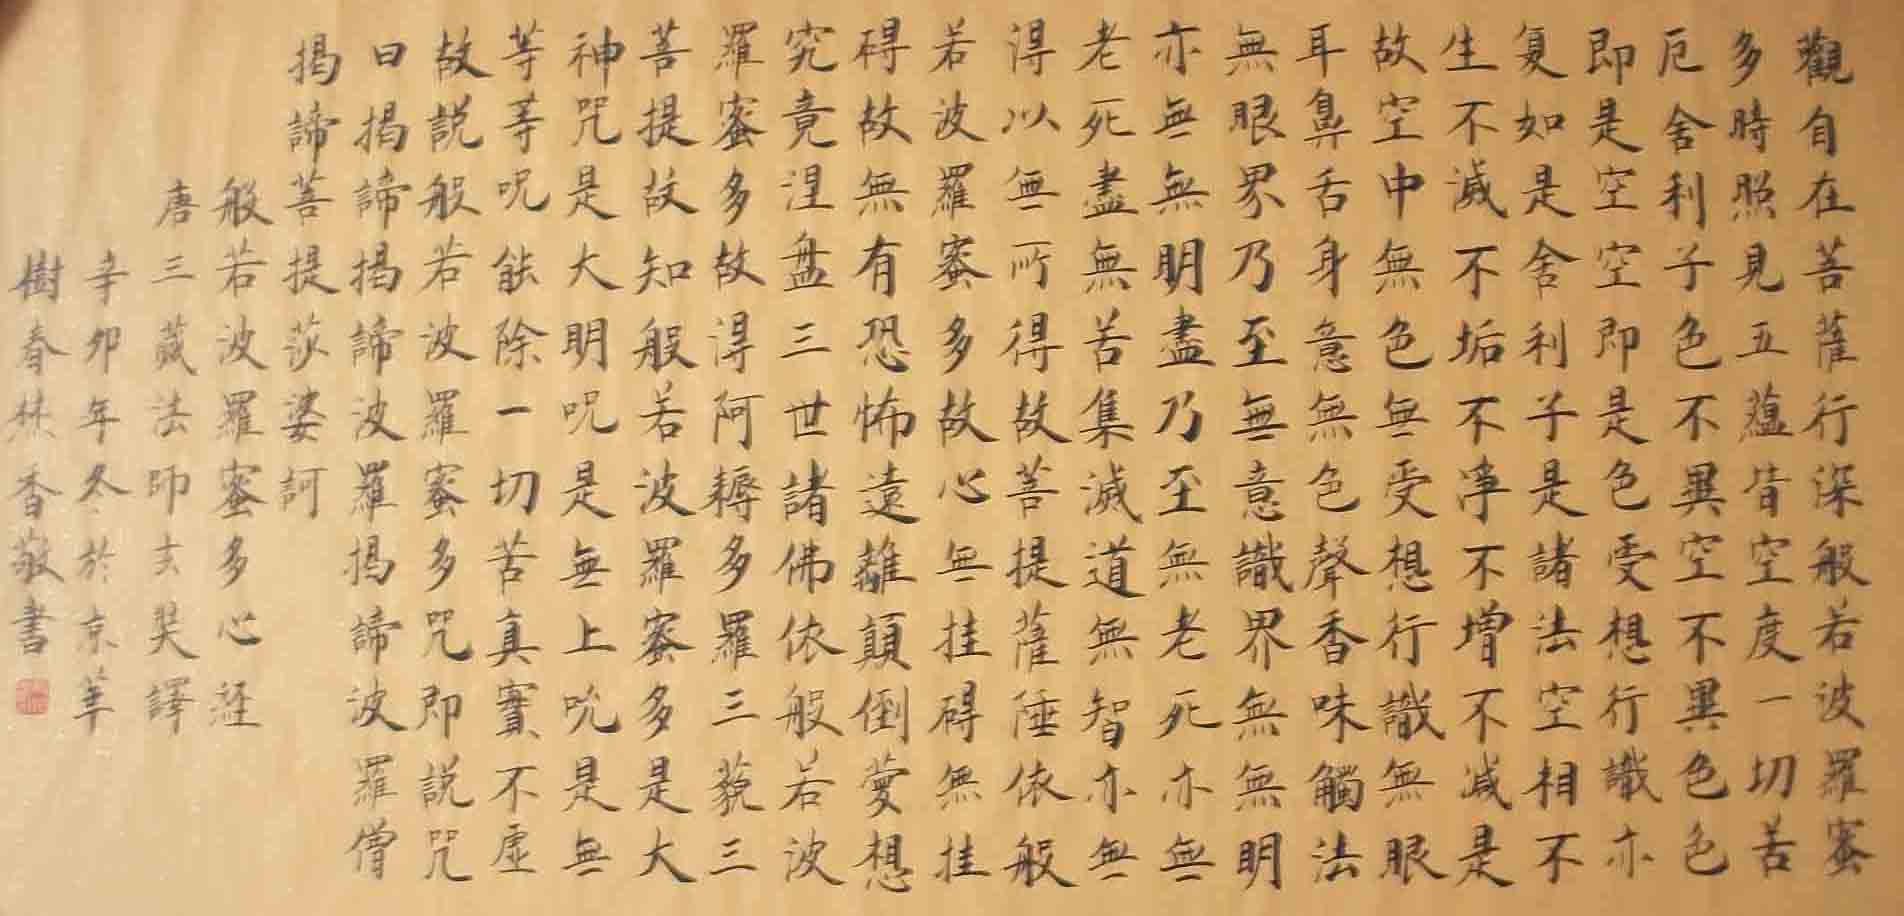 觀自在菩薩行深般若波羅蜜
多時照見五蘊皆空度一切苦
厄舍利子色不異空不異色色
即是空空即是色受想行識亦
复如是舍利子是諸法空相不
生不滅不垢不淨不增不減是
故空中無色無受想行識無眼
耳鼻舌身意無色聲香味觸法
無眼界乃至無意識界無無明
亦無無明盡乃至無老死亦無
老死盡無苦集滅道無智亦無
得以無所得故菩提薩埵依般
若波羅蜜多故心無挂碍無挂
碍故無有恐怖遠離顛倒夢想
究竟涅盤三世諸佛依般若波
羅蜜多故得阿耨多羅三藐三
菩提故知般若波羅蜜多是大
神咒是大明呪是無上呪是無
等等呪能除一切苦真實不虛
故説般若波羅蜜多咒即説咒
曰揭諦揭諦波羅揭諦波羅僧
揭諦菩提莎婆訶
般若波羅蜜多心経
唐三藏法師玄奘譯
辛卯年冬於京華
樹春林香敬書